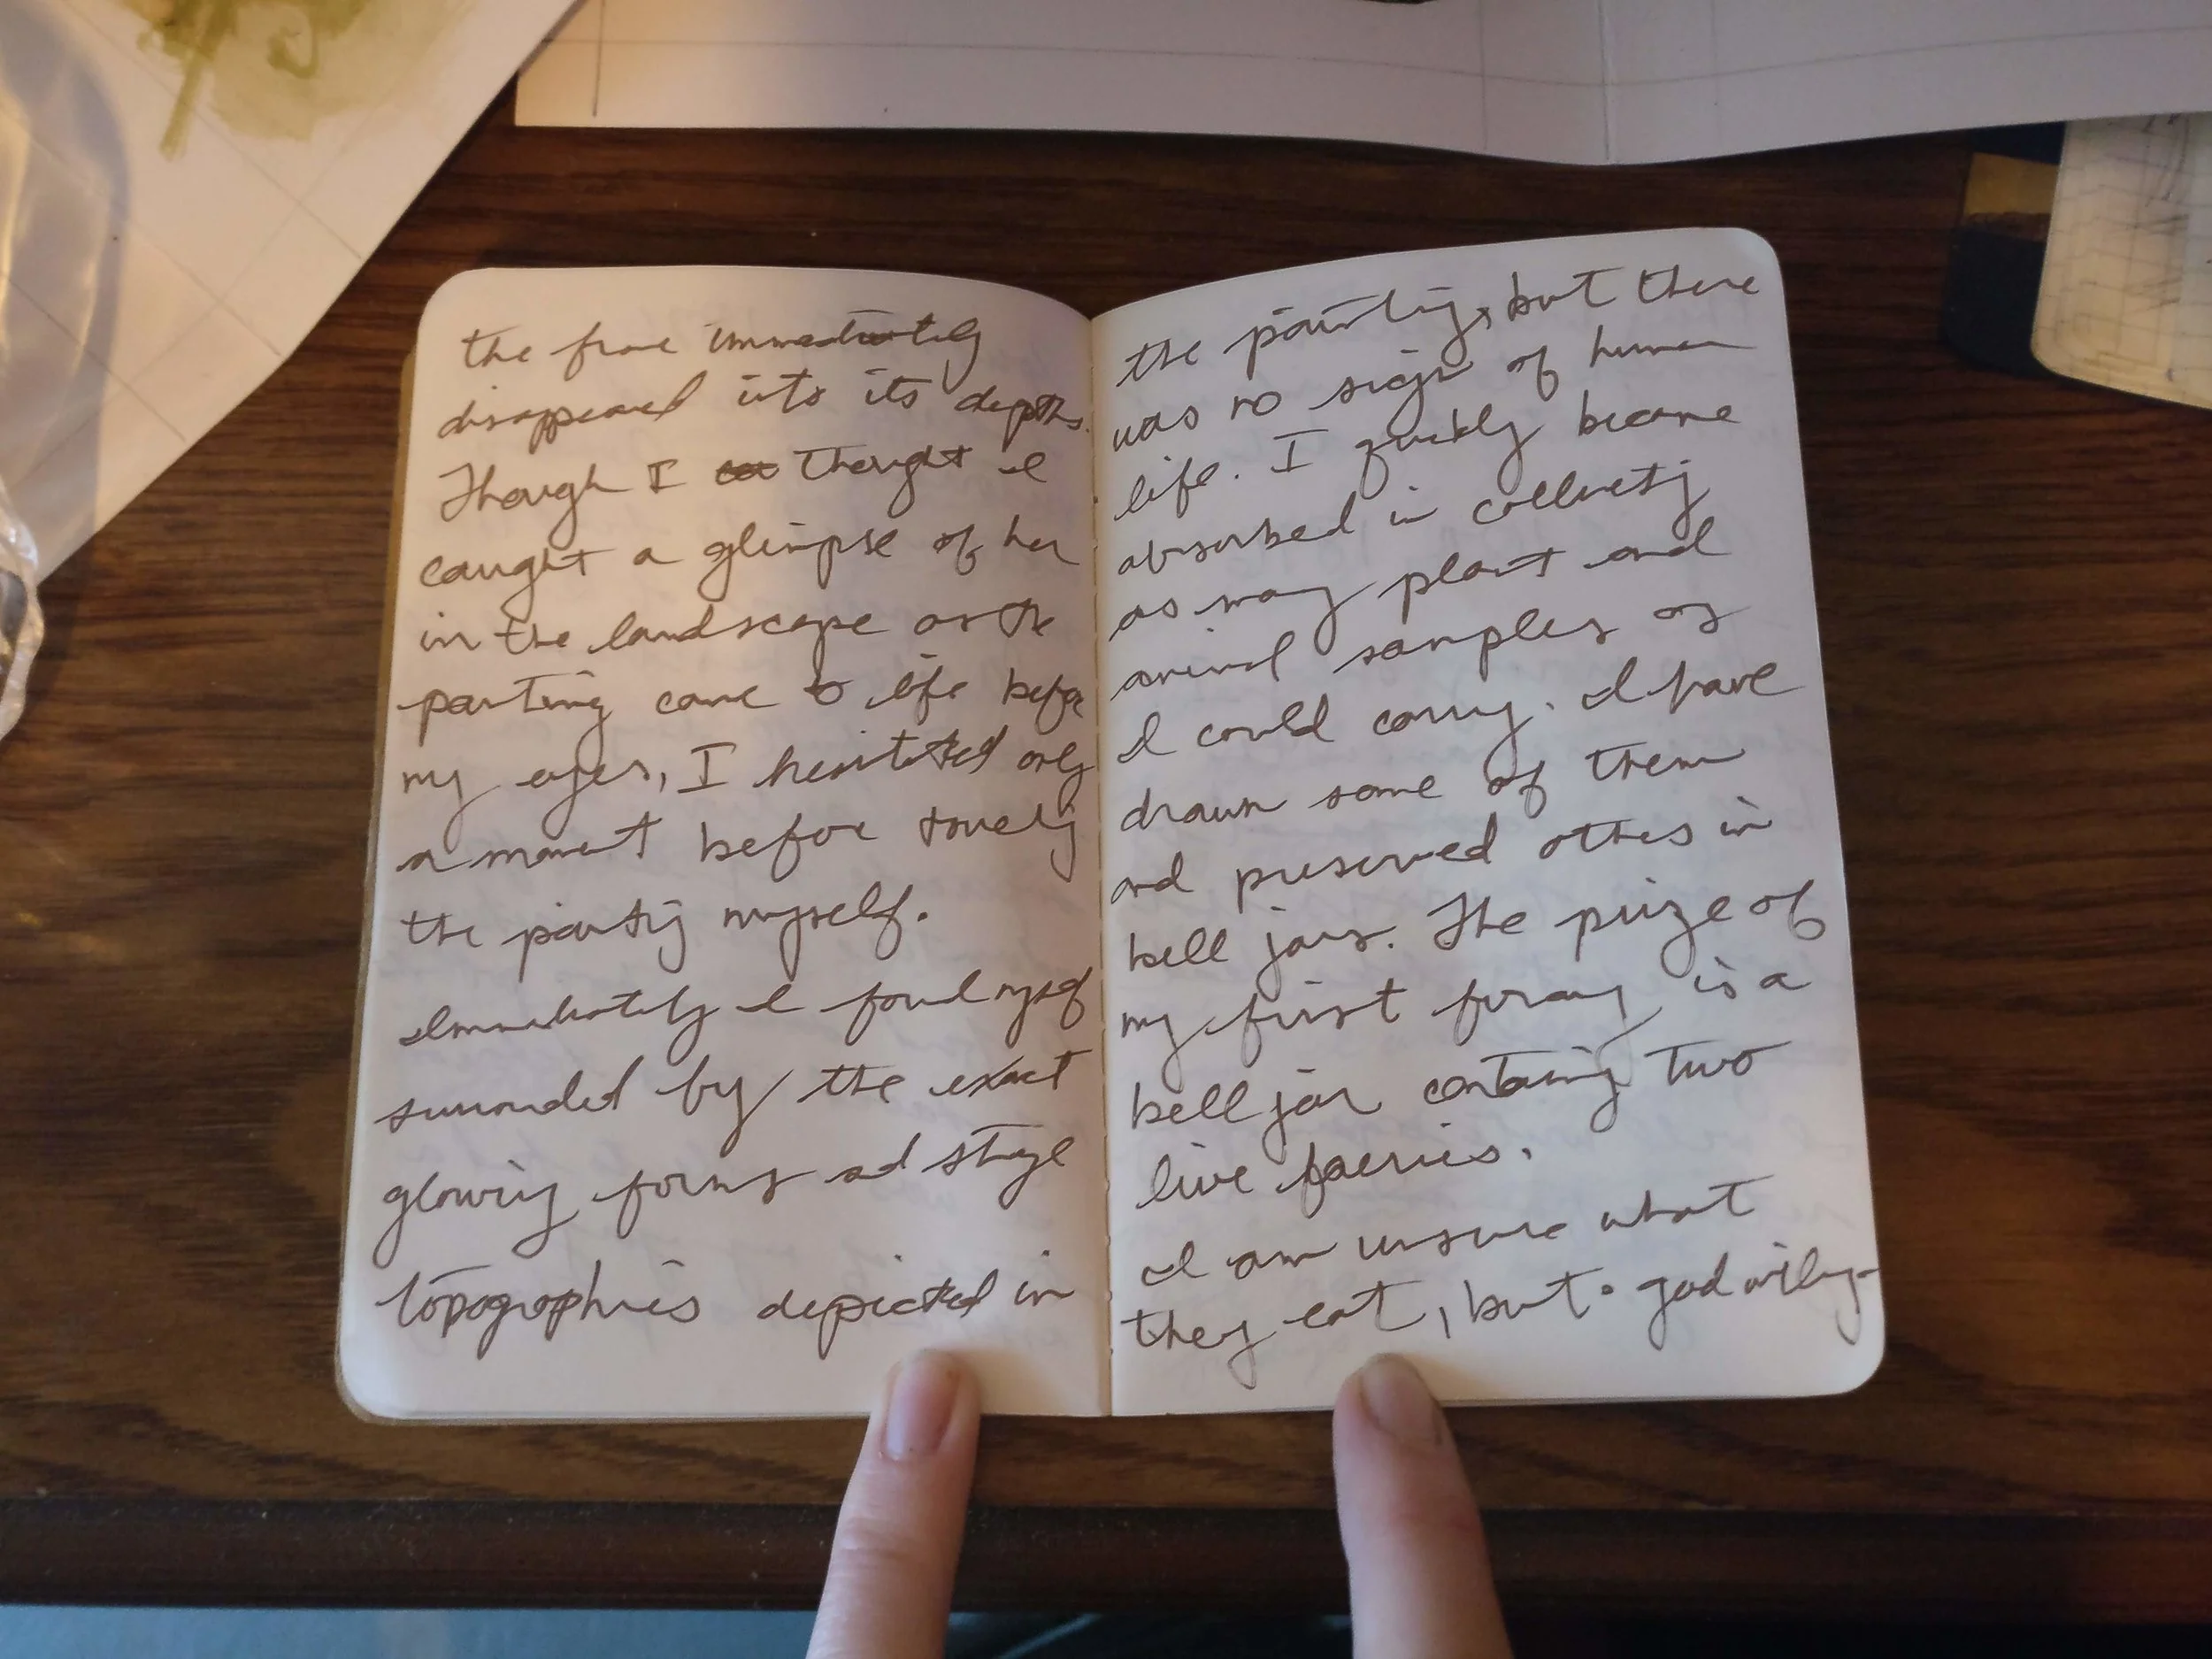 the frame immediately
disappeared into its depths.
Though I thought I
caught a glimpse of her
in the landscape as the
painting came to life before
my eyes, I hesitated only
a moment before touching
the painting myself.
Immediately I found myself
surrounded by the exact
glowing forms and strange
topographies depicted in
the painting, but there
was no sign of human
life. I quickly became
absorbed in collecting
as many plant and
animal samples as
I could carry. I have
drawn some of them
and preserved others in
bell jars. The prize of
my first foray is a
bell jar containing two
live faeries.
I am unsure what
they eat, but god willing